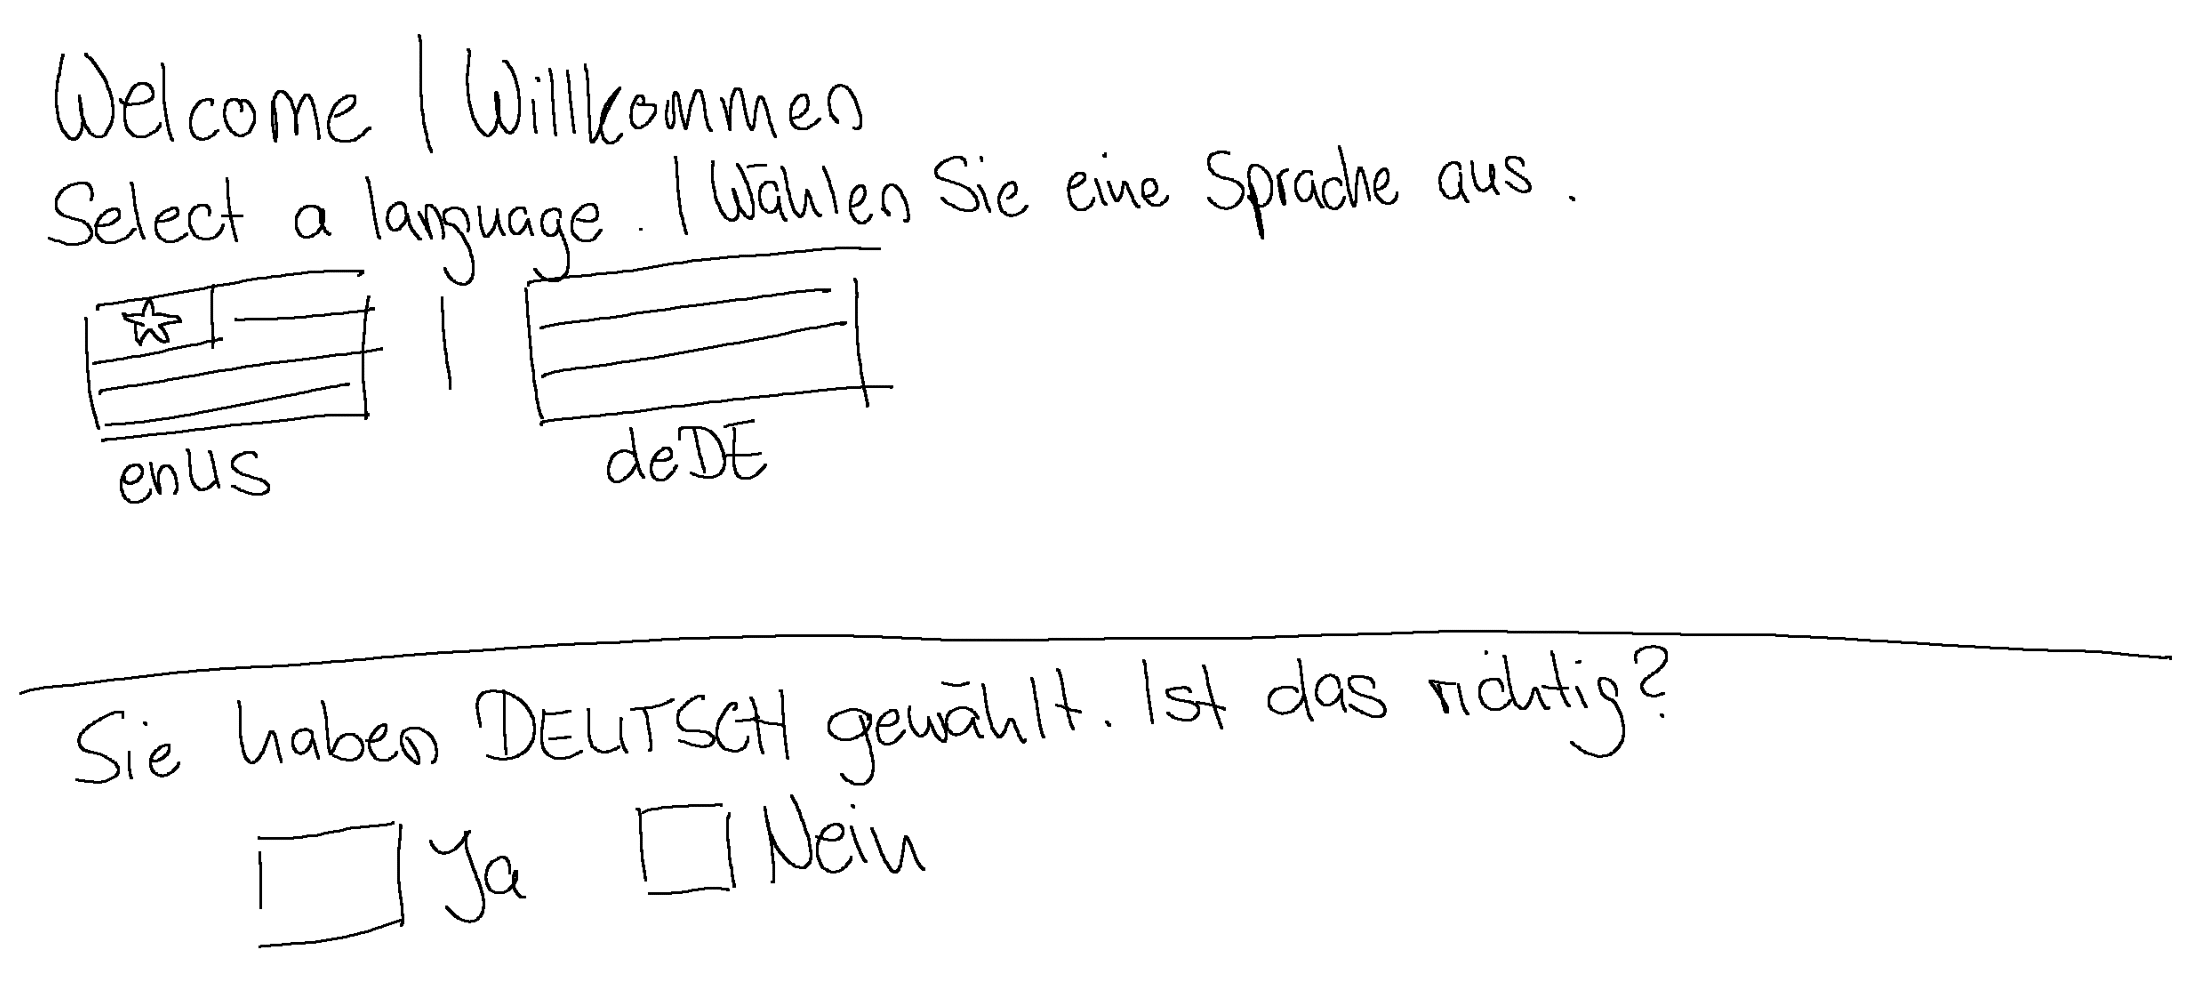 Welcome | Willkommen
Select a language. | Wählen Sie eine Sprache aus.
enUS | deDE
Sie haben DEUTSCH gewählt. Ist das richtig?
Ja Nein